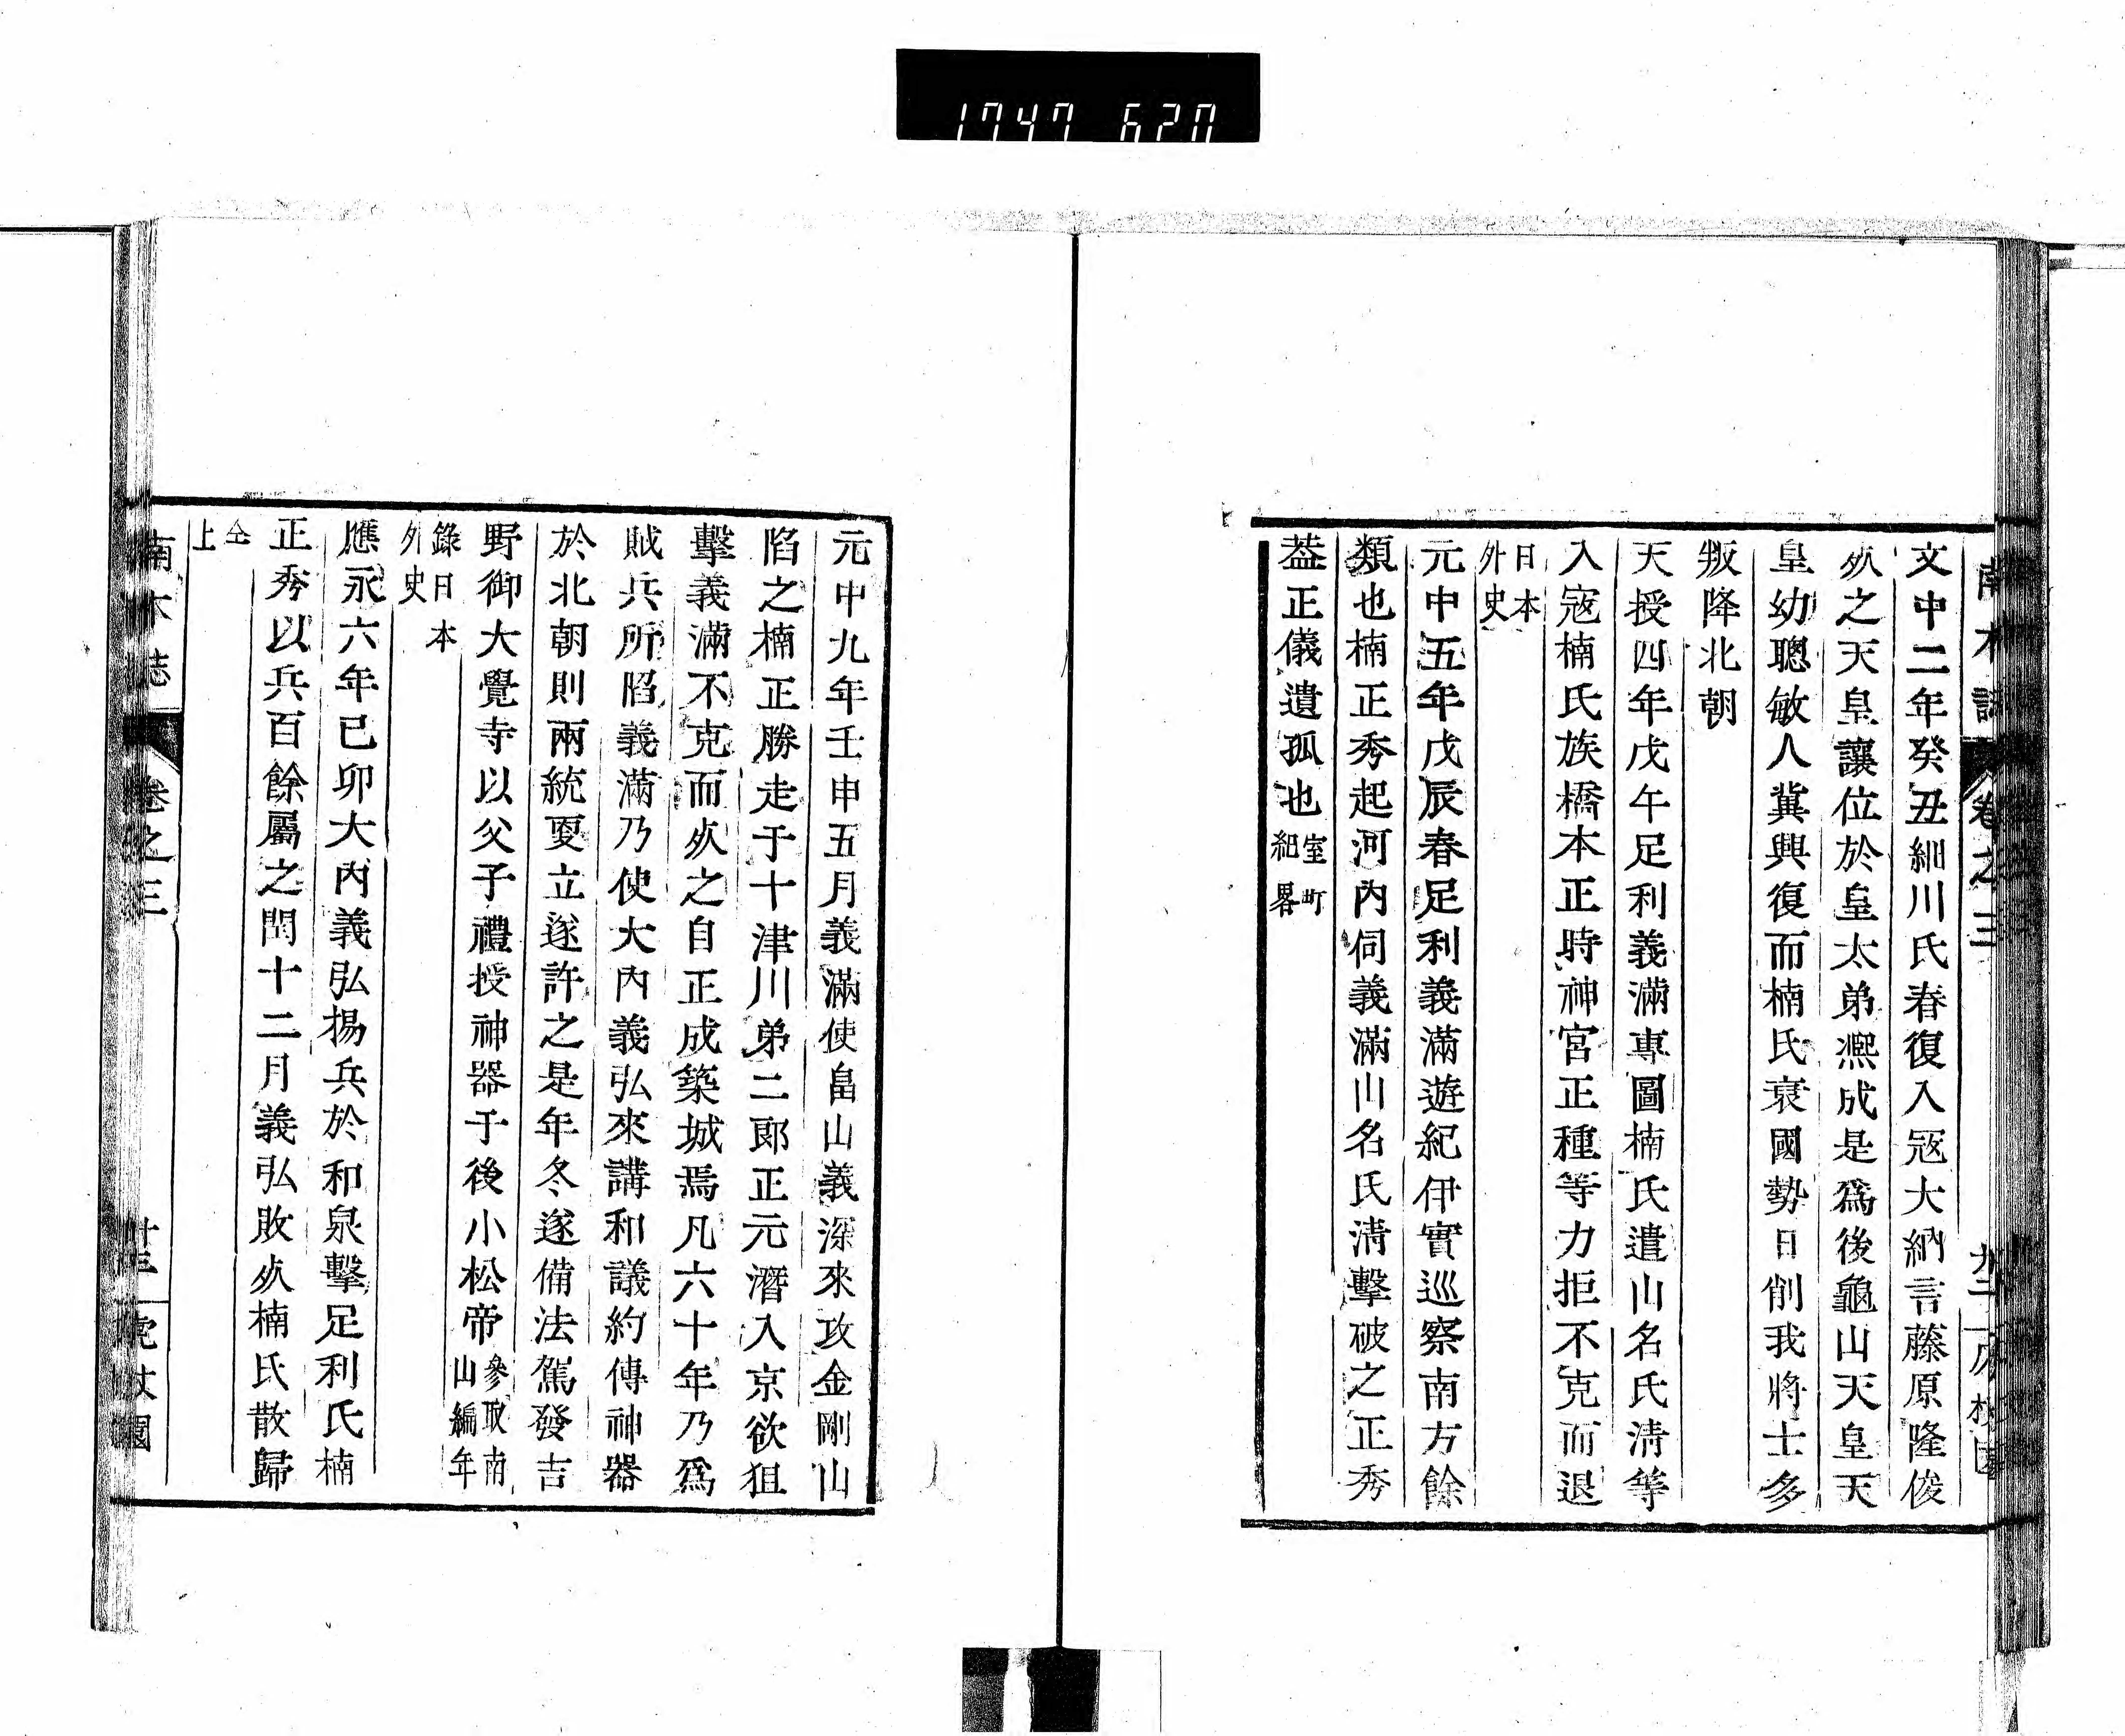 1747 620
南木誌 卷之三
文中二年癸丑細川氏春復入冦大納言藤原隆俊
㱙之天皇讓位於皇太弟熈成是爲後龜山天皇天
皇幼聰敏人冀興復而楠氏衰國勢日削我將士多
叛降北朝
天授四年戊午足利義滿專圖楠氏遣山名氏淸等
入冦楠氏族橋本正時神宮正種等力拒不克而退
日本
外史
元中五年戊辰春足利義滿遊紀伊實巡察南方餘
類也楠正秀起河內伺義滿山名氏淸擊破之正秀
葢正儀遺孤也室町
紀畧
元中九年壬申五月義滿使畠山義深來攻金剛山
陷之楠正勝走于十津川弟二郎正元潛入京欲狙
擊義滿不克而㱙之自正成築城焉凡六十年乃爲
賊兵所陷義滿乃使大內義弘來講和議約傳神器
於北朝則兩統更立遂許之是年冬遂備法駕發吉
野御大覺寺以父子禮授神器于後小松帝參取南
山編年
錄日本
外史
應永六年己卯大內義弘揚兵於和泉擊足利氏楠
正秀以兵百餘屬之閏十二月義弘敗㱙楠氏散歸
仝
上
南木誌 卷之三 虎杖園